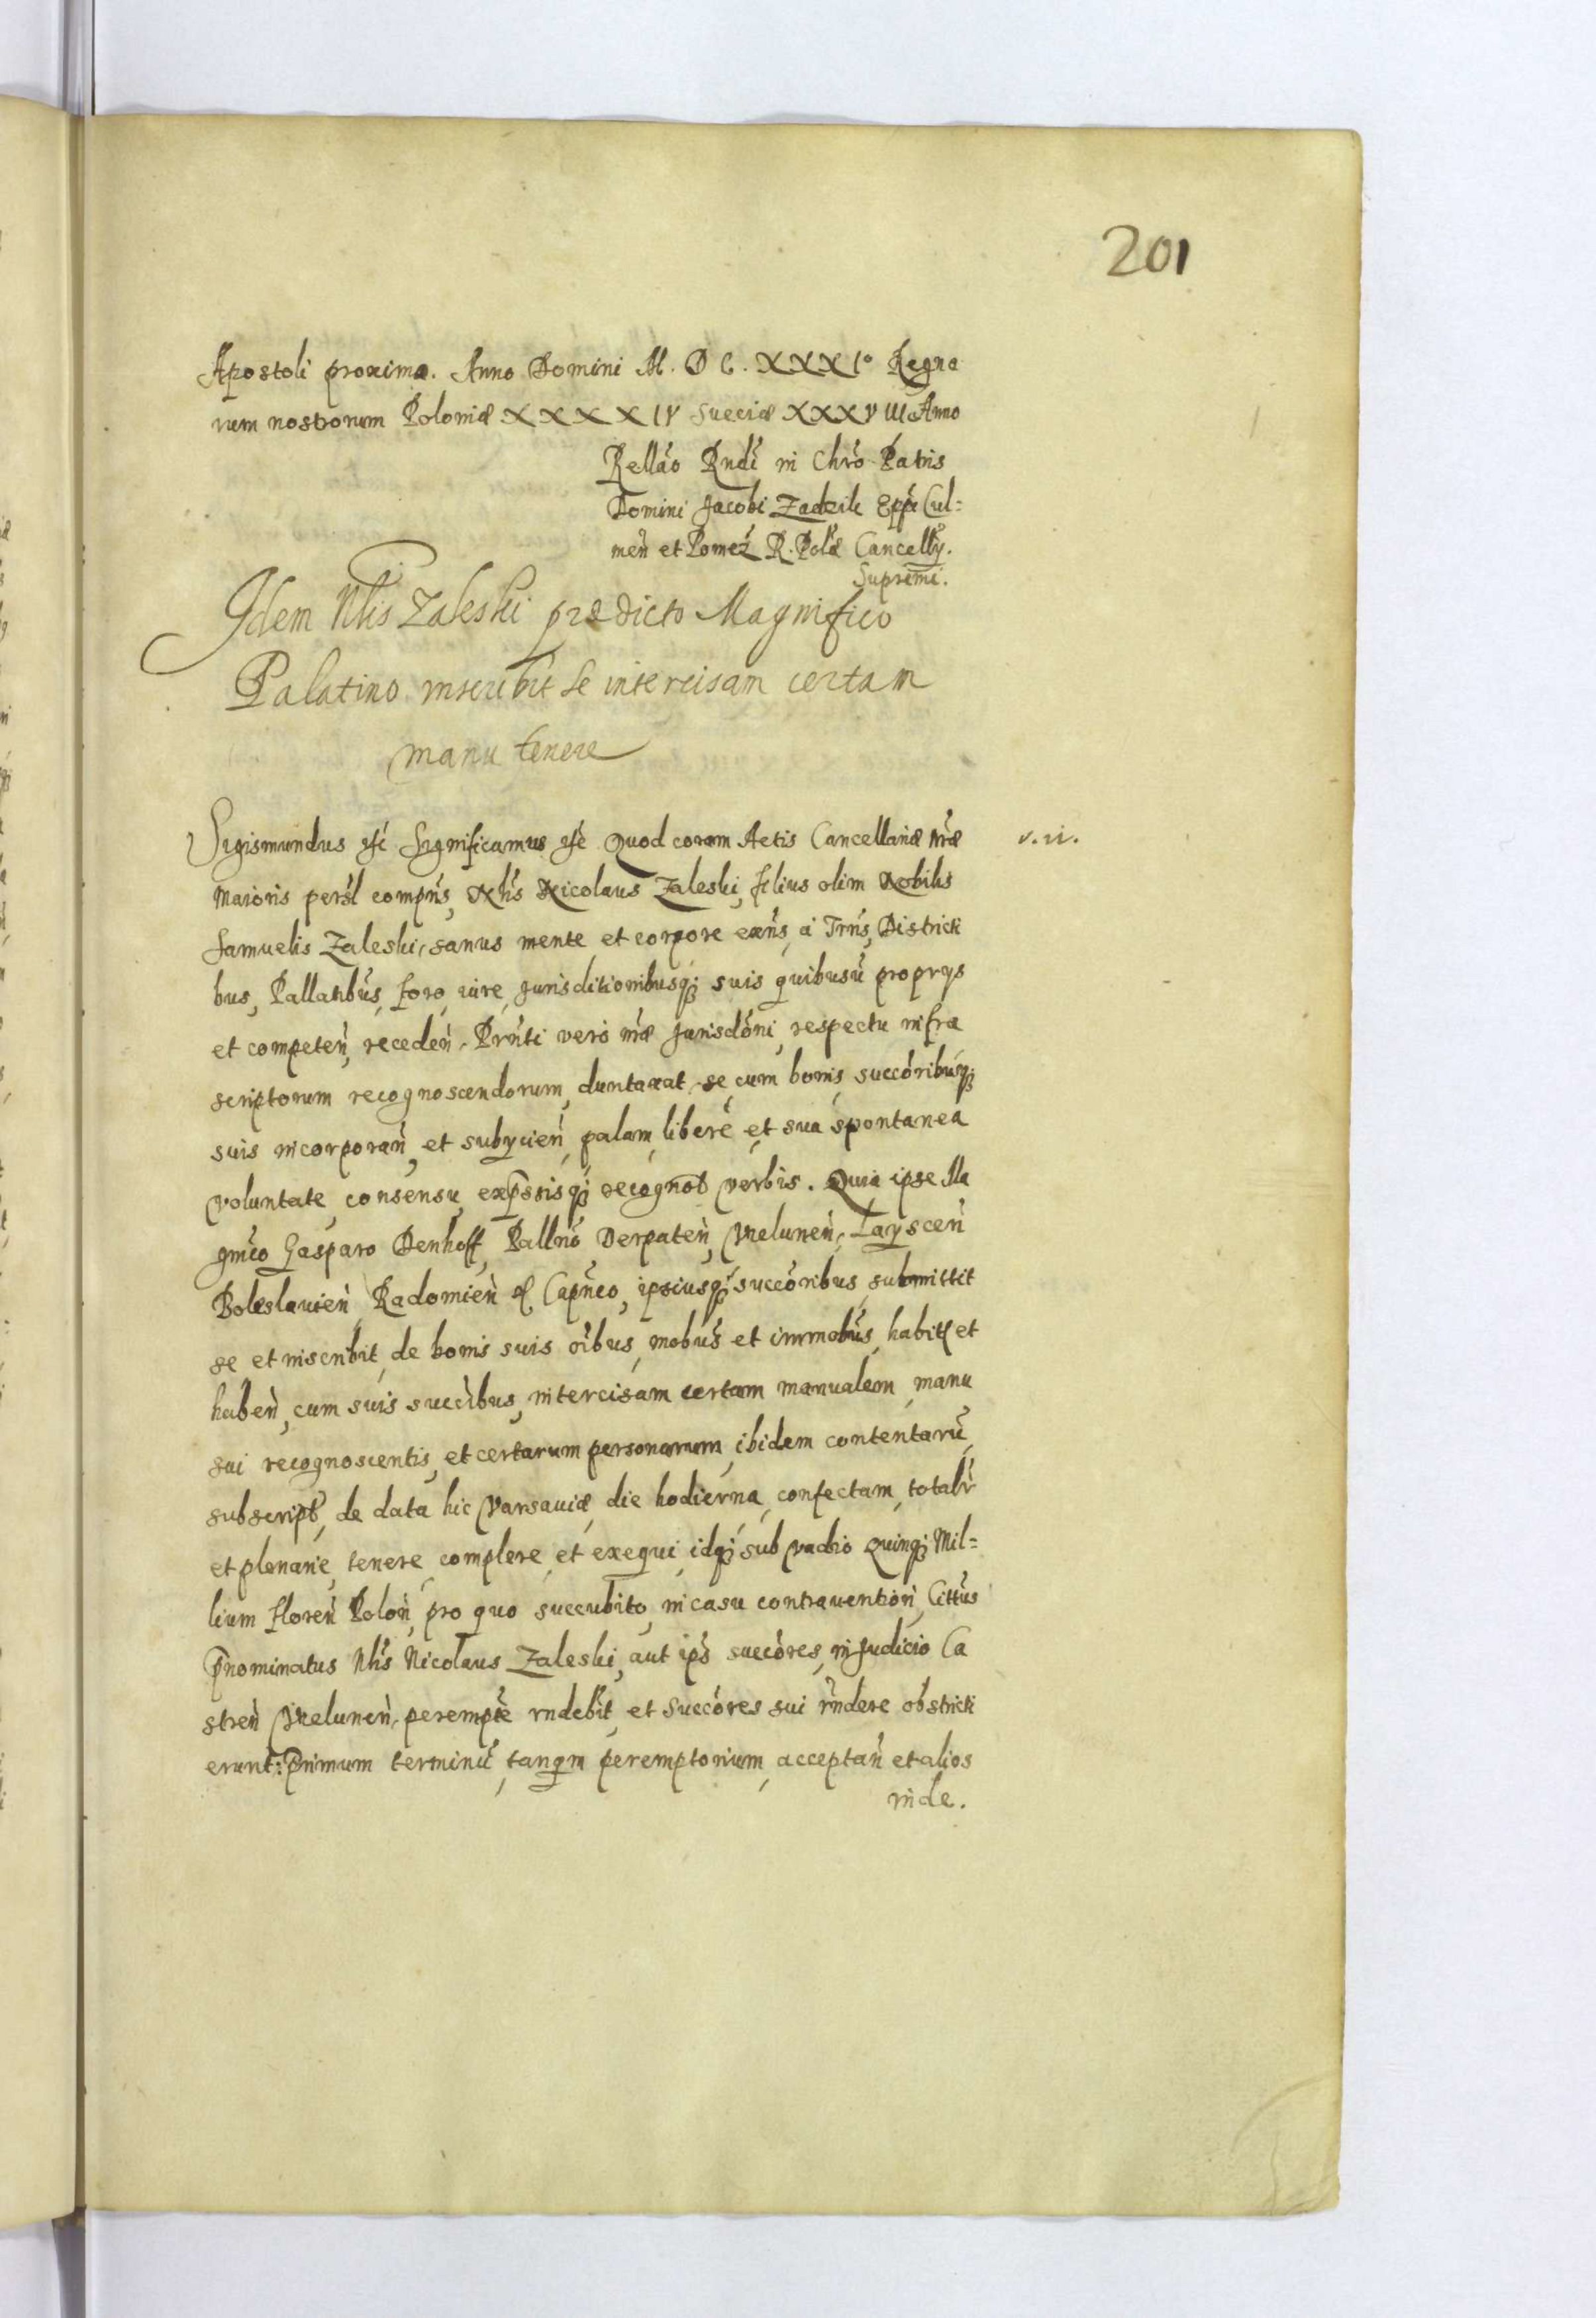 201
Apostoli proxima. Anno Domini M. D C. XXXIº Regno
rum nostrorum Poloniæ XXXXIV Sueciæ XXXVIII Anno
Rellāo Rndi in Chrō Patris
Domini Jacobi Zadzik Eppi Cul=
meñ et Pomez R. Polæ Cancellrij.
Supremi.
Idem Nlis Zaleski prædicto Magnifico
Palatino inscribit se intercisam certam
manu tenere
Sigismundus etc Significamus etc Quod coram Actis Cancellariæ nræ v. ii.
Maioris persl comprns, Nlis Nicolaus Zaleski, filius olim Nobilis
Samuelis Zaleski, sanus mente et corpore exns, a Trris, Districti
bus, Pallatibus, foro, iure, Jurisditionibusq; suis quibusū proprijs
et competeñ, recedeñ. Prnti vero nræ Jurisdōni, respectu infra
scriptorum recognoscendorum, duntaxat, se, cum bonis, succōribusq;
suis incorporañ, et subijcieñ, palam, liberè, et sua spontanea
voluntate, consensu, expssisq; recognōt verbis. Quia ipse Ma
gnico Gasparo Denhoff, Pallno Derpateñ, Vieluneñ, Laysceñ
Boleslavieñ, Radomieñ etc Capneo, ipsiusq; succōribus, submittit
se et inscribit, de bonis suis oibus, mobus et immobus, habitis et
habeñ, cum suis succibus, intercisam certam manualem, manu
sui recognoscentis, et certarum personarum, ibidem contentarū,
subscript, de data hic Varsaviæ, die hodierna, confectam, totalr
et plenarie, tenere, complere, et exequi, idq; sub vadio Quinq; Mil=
lium Floreñ Poloñ, pro quo succubito, in casu contraventioñ, Cittus
Pnominatus Nlis Nicolaus Zaleski, aut ips succōres, in Judicio Ca
streñ Vieluneñ, perempte rndebit, et Succōres sui rndere obstricti
erunt: Primum terminū, tanqm peremptorium, acceptañ et alios
inde.